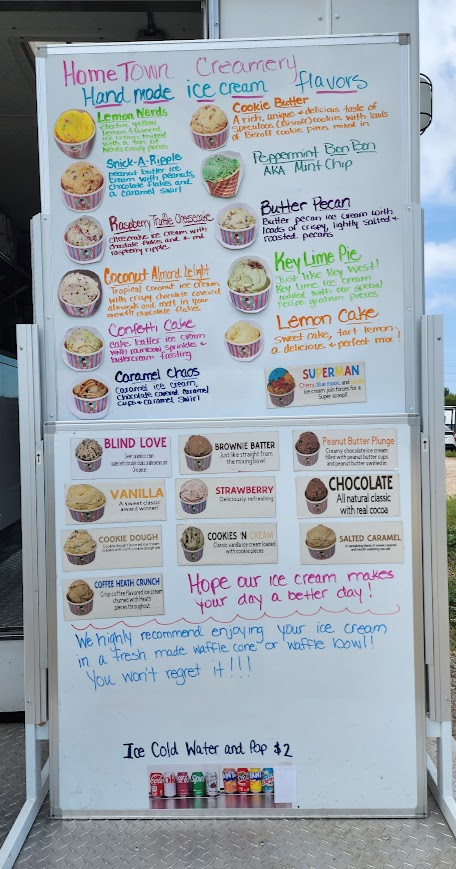 HomeTown Creamery
Handmade ice cream flavors
Lemon Nerds
electric yellow
lemon flavored
ice cream mixed
with a ton of
Nerds candy pieces
Cookie Butter
A rich, unique & delicious taste of
speculoos (Biscoff) cookies with loads
of Biscoff cookie pieces mixed in
Snick-A-Ripple
peanut butter ice
cream with peanuts,
chocolate flakes and
a caramel swirl
Peppermint Bon Bon
AKA Mint Chip
Raspberry Truffle Cheesecake
cheesecake ice cream with
chocolate flakes and a red
raspberry ripple
Butter Pecan
Butter pecan ice cream with
loads of crispy, lightly salted &
roasted pecans
Coconut Almond Delight
Tropical coconut ice cream
with crispy chocolate covered
almonds and melt in your
mouth chocolate flakes.
Key Lime Pie
Just like Key West!
Key lime ice cream
loaded with our special
recipe graham pieces
Confetti Cake
cake batter ice cream
with rainbow sprinkles &
buttercream frosting
Lemon Cake
sweet cake, tart lemon,
a delicious & perfect mix!
Caramel Chaos
Caramel ice cream,
chocolate covered caramel
cups & caramel swirl
SUPERMAN
Cherry, blue moon, and
ice cream join forces for a
Super scoop!
BLIND LOVE
BROWNIE BATTER
Just like straight from
the mixing bowl.
Peanut Butter Plunge
Creamy chocolate ice cream
filled with peanut butter cups
and peanut butter swirled in
VANILLA
A sweet classic
award winner!
STRAWBERRY
Deliciously refreshing
CHOCOLATE
All natural classic
with real cocoa
COOKIE DOUGH
Cookie dough flavored ice cream
loaded with cookie dough
COOKIES 'N CREAM
Classic vanilla ice cream loaded
with cookie pieces
SALTED CARAMEL
COFFEE HEATH CRUNCH
Crisp coffee flavored ice cream
churned with Heath
pieces throughout
Hope our ice cream makes
your day a better day!
We highly recommend enjoying your ice cream
in a fresh made waffle cone or waffle bowl!
You won't regret it!!!
Ice Cold Water and Pop $2